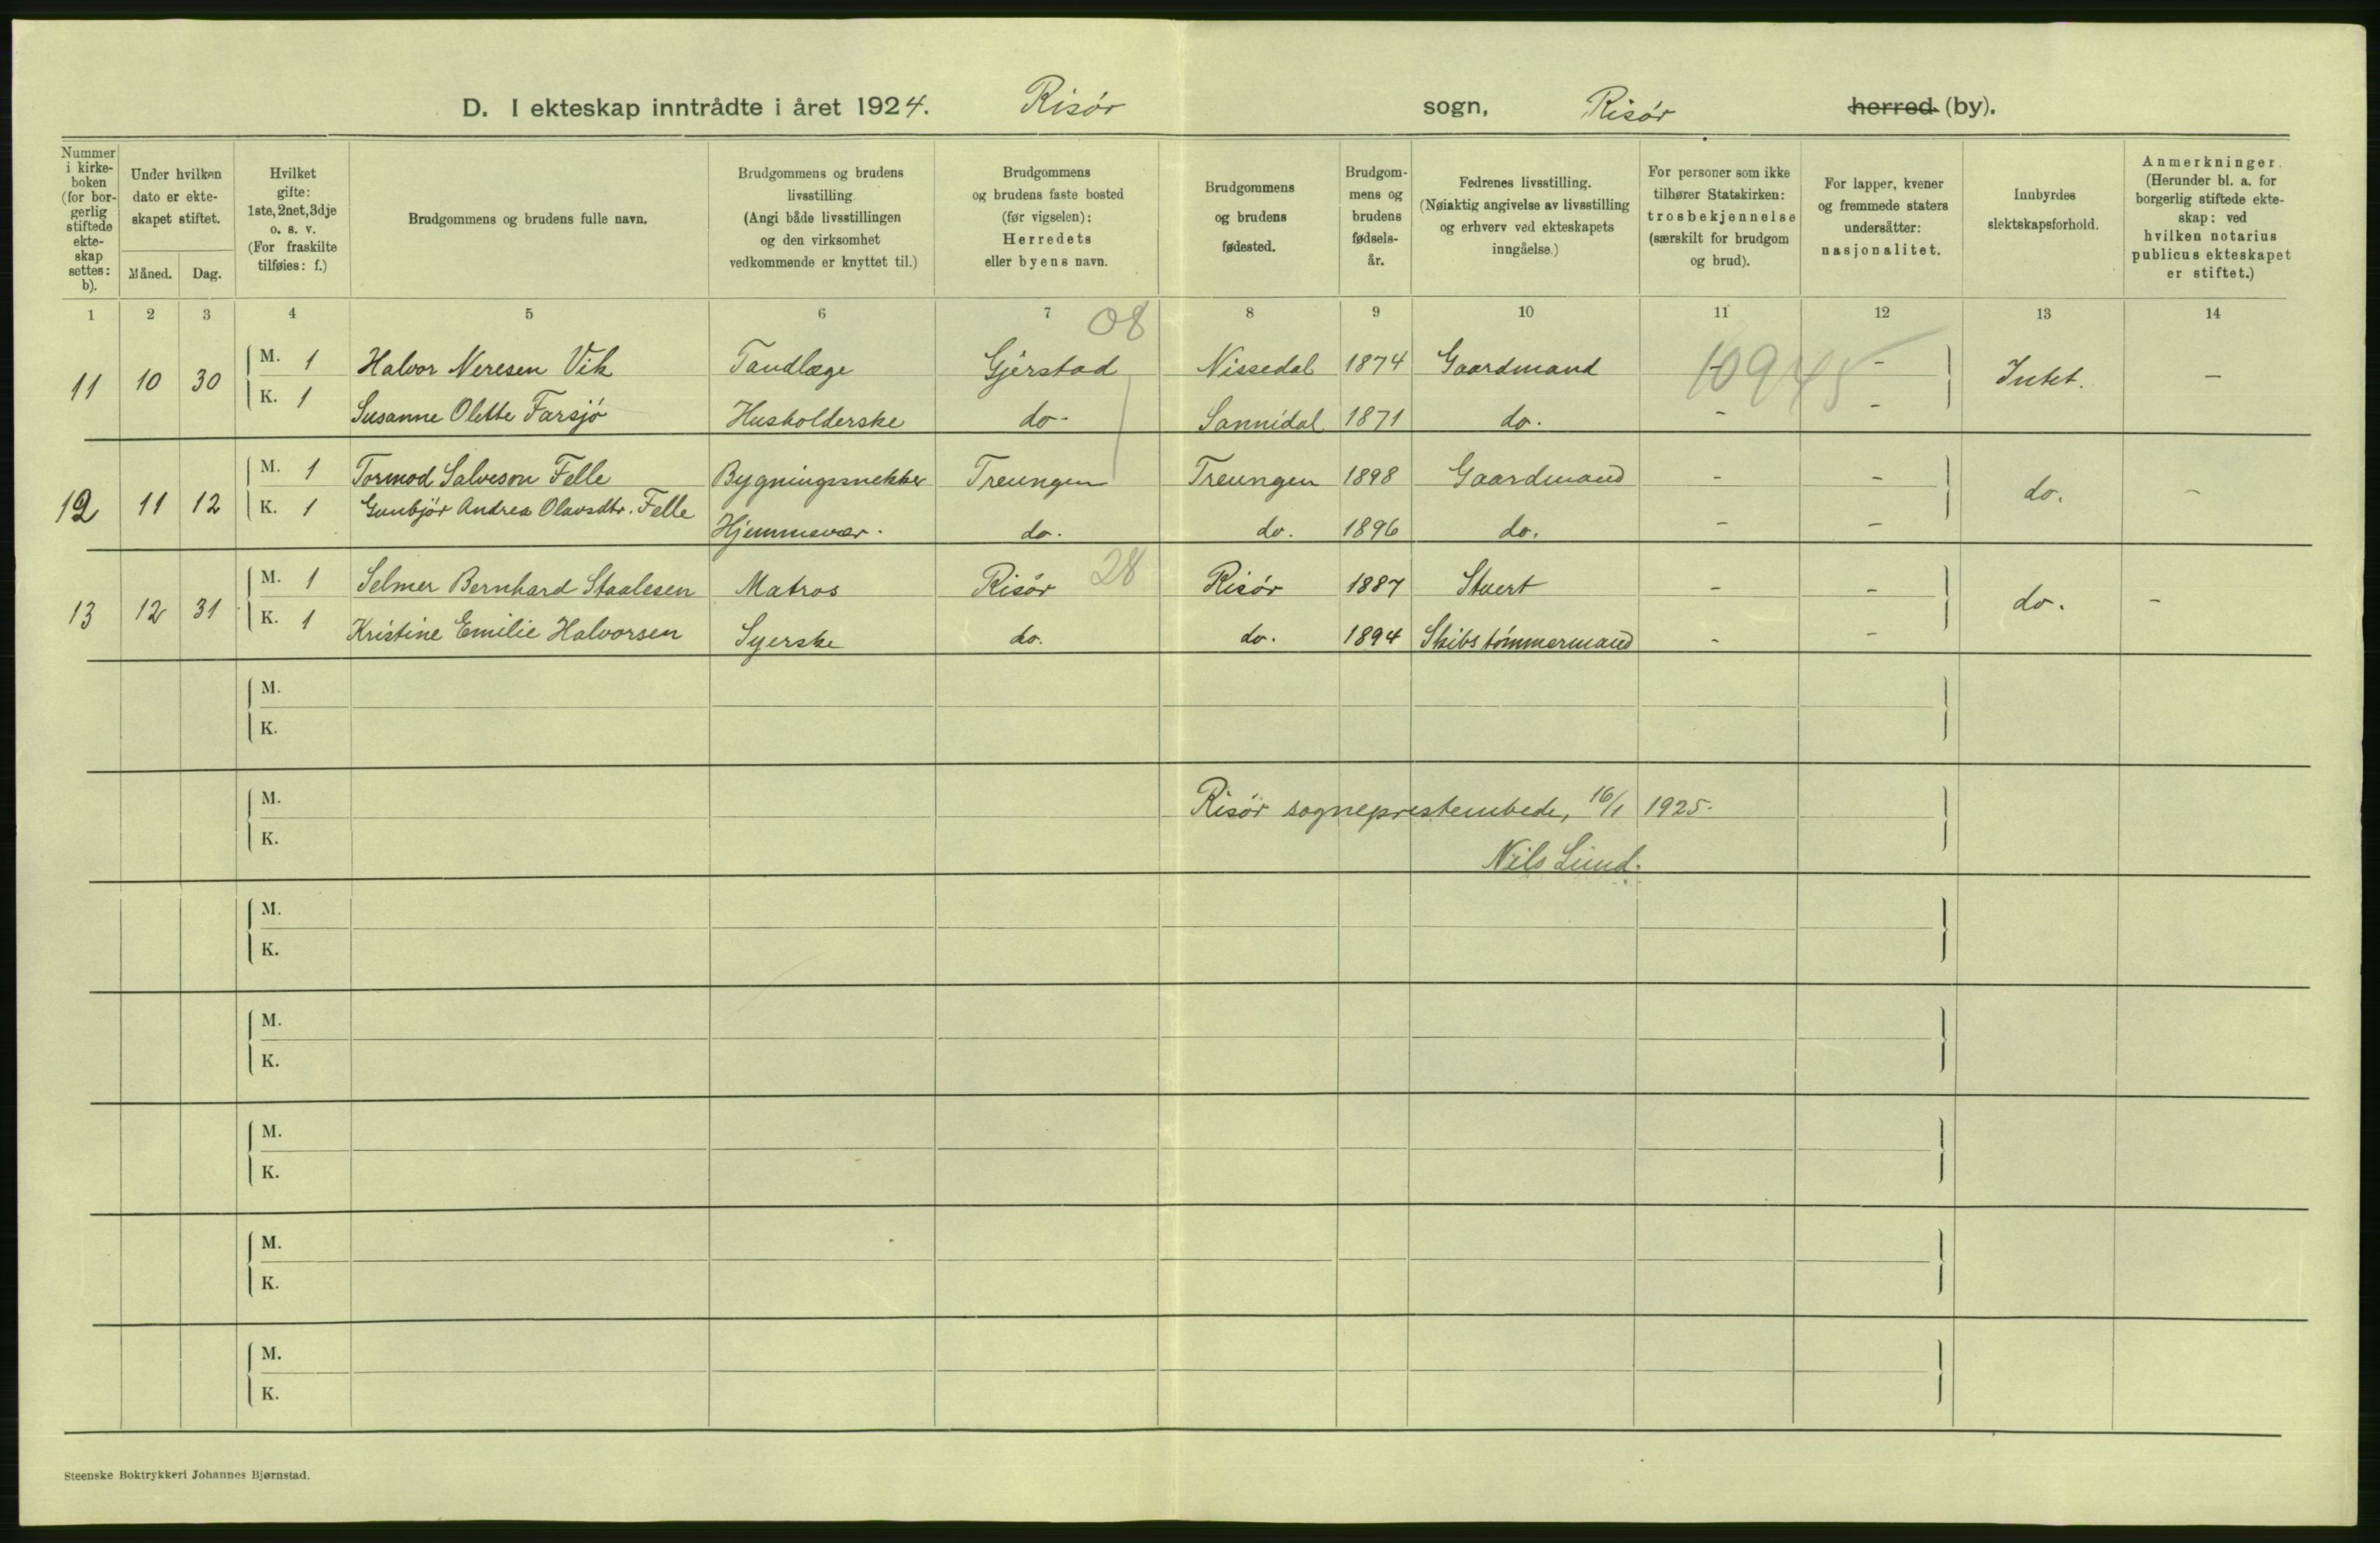 D. I ekteskap inntrådte i året 1924. Risör sogn, Risör herred (by).
Nummer i kirke-boken (for bor-gerlig stiftede ekte-skap settes: b).
Under hvilken dato er ekte-skapet stiftet.
Måned. Dag.
Hvilket gifte: 1ste, 2net, 3dje o. s. v. (For fraskilte tilføies: f.)
Brudgommens og brudens fulle navn.
Brudgommens og brudens livsstilling. (Angi både livsstillingen og den virksomhet vedkommende er knyttet til.)
Brudgommens og brudens faste bosted (før vigselen): Herredets eller byens navn.
Brudgommens og brudens fødested.
Brudgom-mens og brudens fødsels-år.
Fedrenes livsstilling. (Nøiaktig angivelse av livsstilling og erhverv ved ekteskapets inngåelse.)
For personer som ikke tilhører Statskirken: trosbekjennelse (særskilt for brudgom og brud).
For lapper, kvener og fremmede staters undersåtter: nasjonalitet.
Innbyrdes slektskapsforhold.
Anmerkninger. (Herunder bl. a. for borgerlig stiftede ekte-skap: ved hvilken notarius publicus ekteskapet er stiftet.)
1 2 3 4 5 6 7 8 9 10 11 12 13 14
08
11 10 30 M. 1 Halvor Neresen Vik Tandlæge Gjerstad Nissedal 1874 Gaardmand - - Intet. -
10945
K. 1 Susanne Olette Farsjö Husholderske do. Sannidal 1871 do. - -
12 11 12 M. 1 Tormod Salveson Felle Bygningssnekker Treungen Treungen 1898 Gaardmand - - do. -
K. 1 Gunbjör Andrea Olavsdtr. Felle Hjemmevær. do. do. 1896 do. - -
28
13 12 31 M. 1 Selmer Bernhard Staalesen Matros Risör Risör 1887 Stuert - - do. -
K. 1 Kristine Emilie Halvorsen Syerske do. do. 1894 Skibstömmermand - -
M.
K.
M.
Risör sogneprestembede, 16/1 1925.
K.
Nils Lund.
M.
K.
M.
K.
M.
K.
M.
K.
M.
K.
Steenske Boktrykkeri Johannes Bjørnstad.